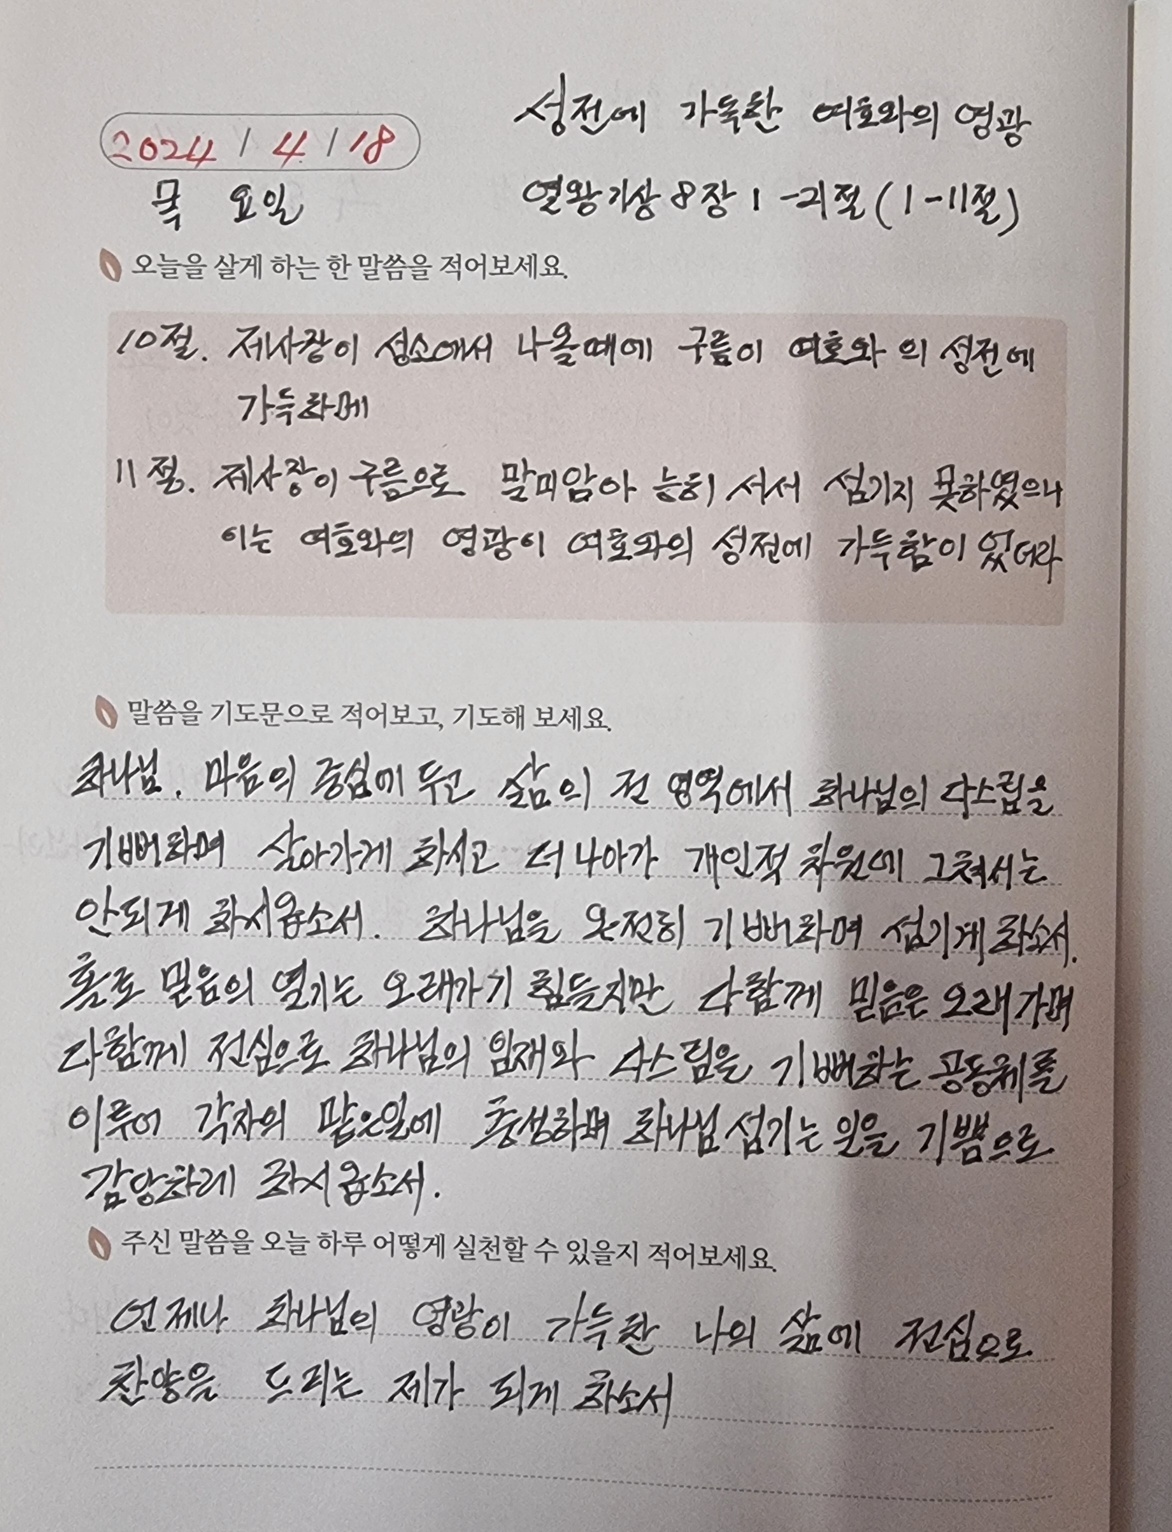 성전에 가득한 여호와의 영광
2024 / 4 / 18
목 요일
열왕기상 8장 1 - 21절 (1 - 11절)
오늘을 살게 하는 한 말씀을 적어보세요.
10절. 제사장이 성소에서 나올때에 구름이 여호와 의 성전에
가득하메
11절. 제사장이 구름으로 말미암아 능히 서서 섬기지 못하였으니
이는 여호와의 영광이 여호와의 성전에 가득함이 었더라
말씀을 기도문으로 적어보고, 기도해 보세요.
하나님. 마음의 중심에 두고 삶의 전 영역에서 하나님의 다스림을
기뻐하며 살아가게 하시고 더 나아가 개인적 차원에 그쳐서는
안되게 하시옵소서. 하나님을 온전히 기뻐하며 섬기게 하소서.
홀로 믿음의 열기는 오래가기 힘들지만 다함께 믿음은 오래가며
다함께 전심으로 하나님의 임재와 다스림을 기뻐하는 공동체를
이루어 각자의 맡은일에 충성하며 하나님 섬기는 일을 기쁨으로
감당하레 하시옵소서.
주신 말씀을 오늘 하루 어떻게 실천할 수 있을지 적어보세요.
언제나 하나님의 영광이 가득찬 나의 삶에 전심으로
찬양을 드리는 제가 되게 하소서